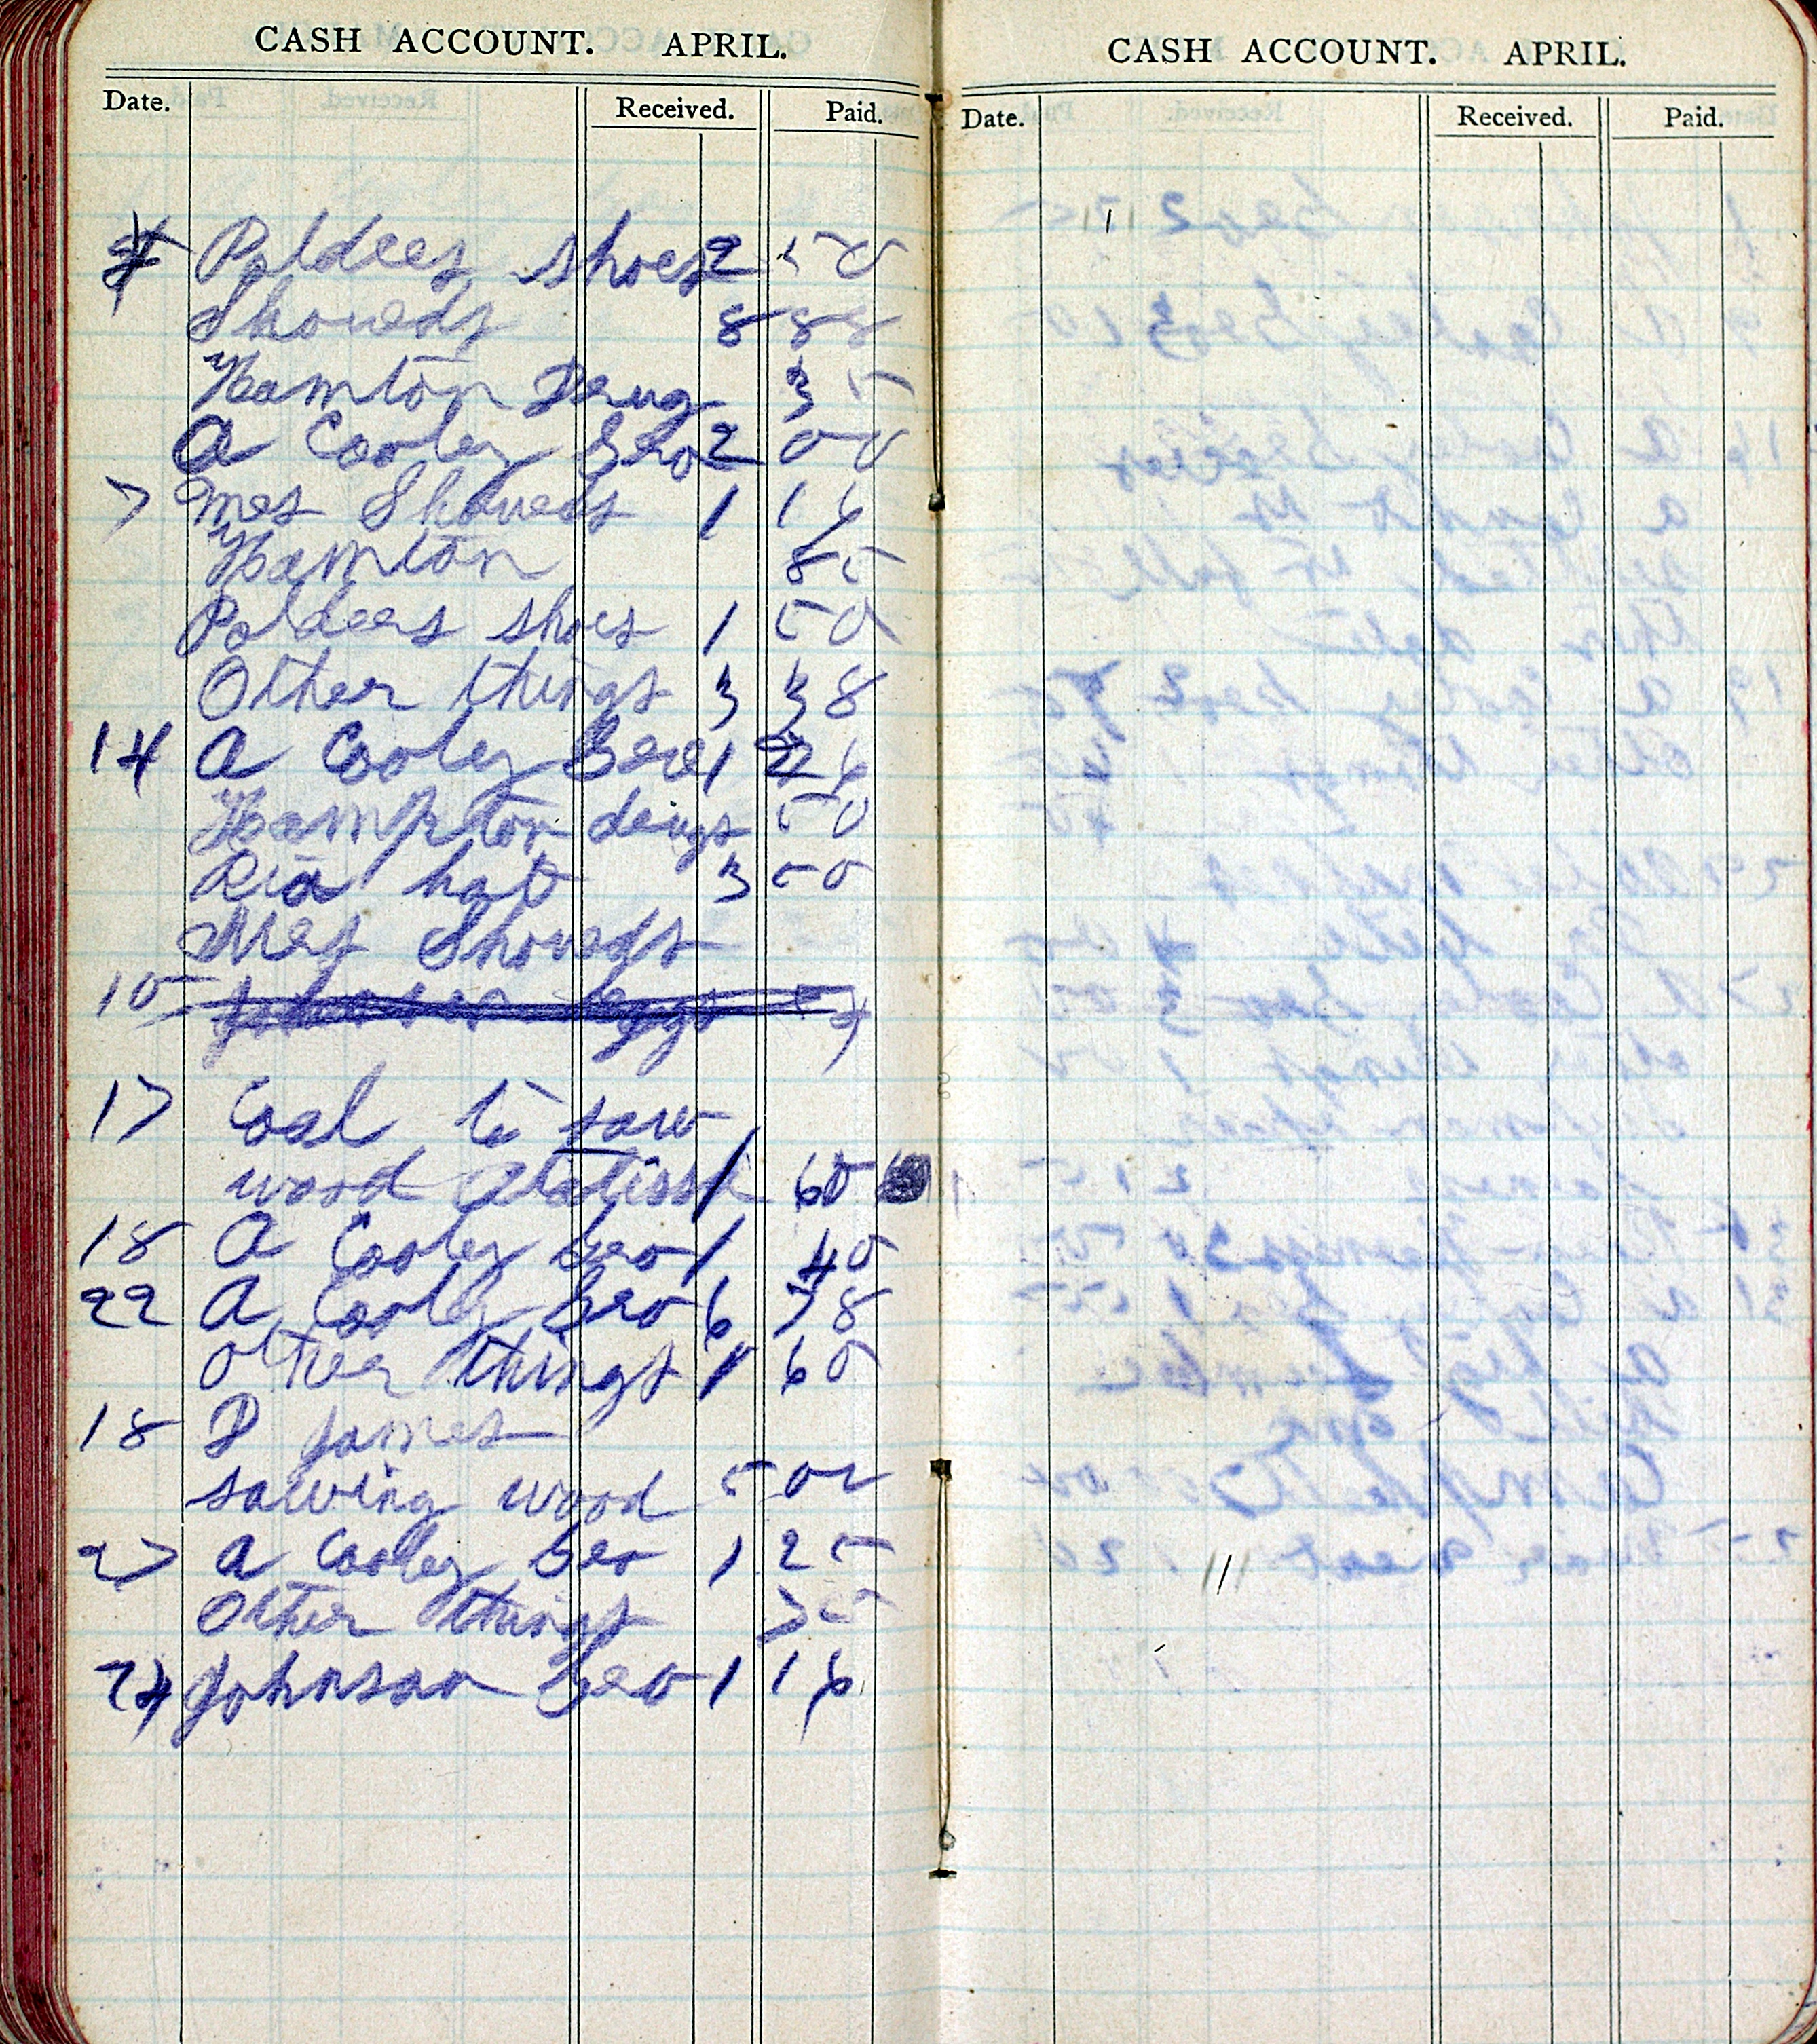 CASH ACCOUNT. APRIL.
Date. Received. Paid.
Poldees shoes 2 50
Shoveds 8 88
Hamton Drug 35
A Cooley Gro 2 00
7 Mrs Shoveds 1 16
Hamton 85
Poldees shoes 1 50
Other things 3 38
14 A Cooley 1 26
Hampton drugs 50
Ria hat 3 50
Mrs Shoveds
10
17 Coal to saw
wood 1 60
18 A Cooley Gro 1 40
22 A Cooley Gro 6 78
Other things 1 60
18 P James
sawing wood 50
27 A Cooley Gro 1 25
Other things 75
24 Johnson Gro 1 16
CASH ACCOUNT. APRIL.
Date. Received. Paid.